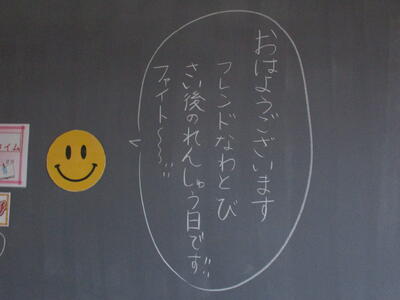 おはようございます
フレンドなわとび
さい後のれんしゅう日です!!
ファイト〜〜!!
イム